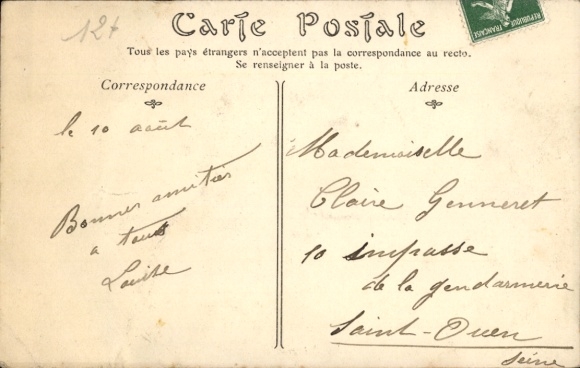 12+
Carte Postale
RÉPUBLIQUE
FRANÇAISE
Tous les pays étrangers n'acceptent pas la correspondance au recto.
Se renseigner à la poste.
Correspondance
le 10 août
Bonnes amitiés
a tous
Louise
Adresse
Mademoiselle
Claire Genneret
10 impasse
de la gendarmerie
Saint-Ouen
Seine